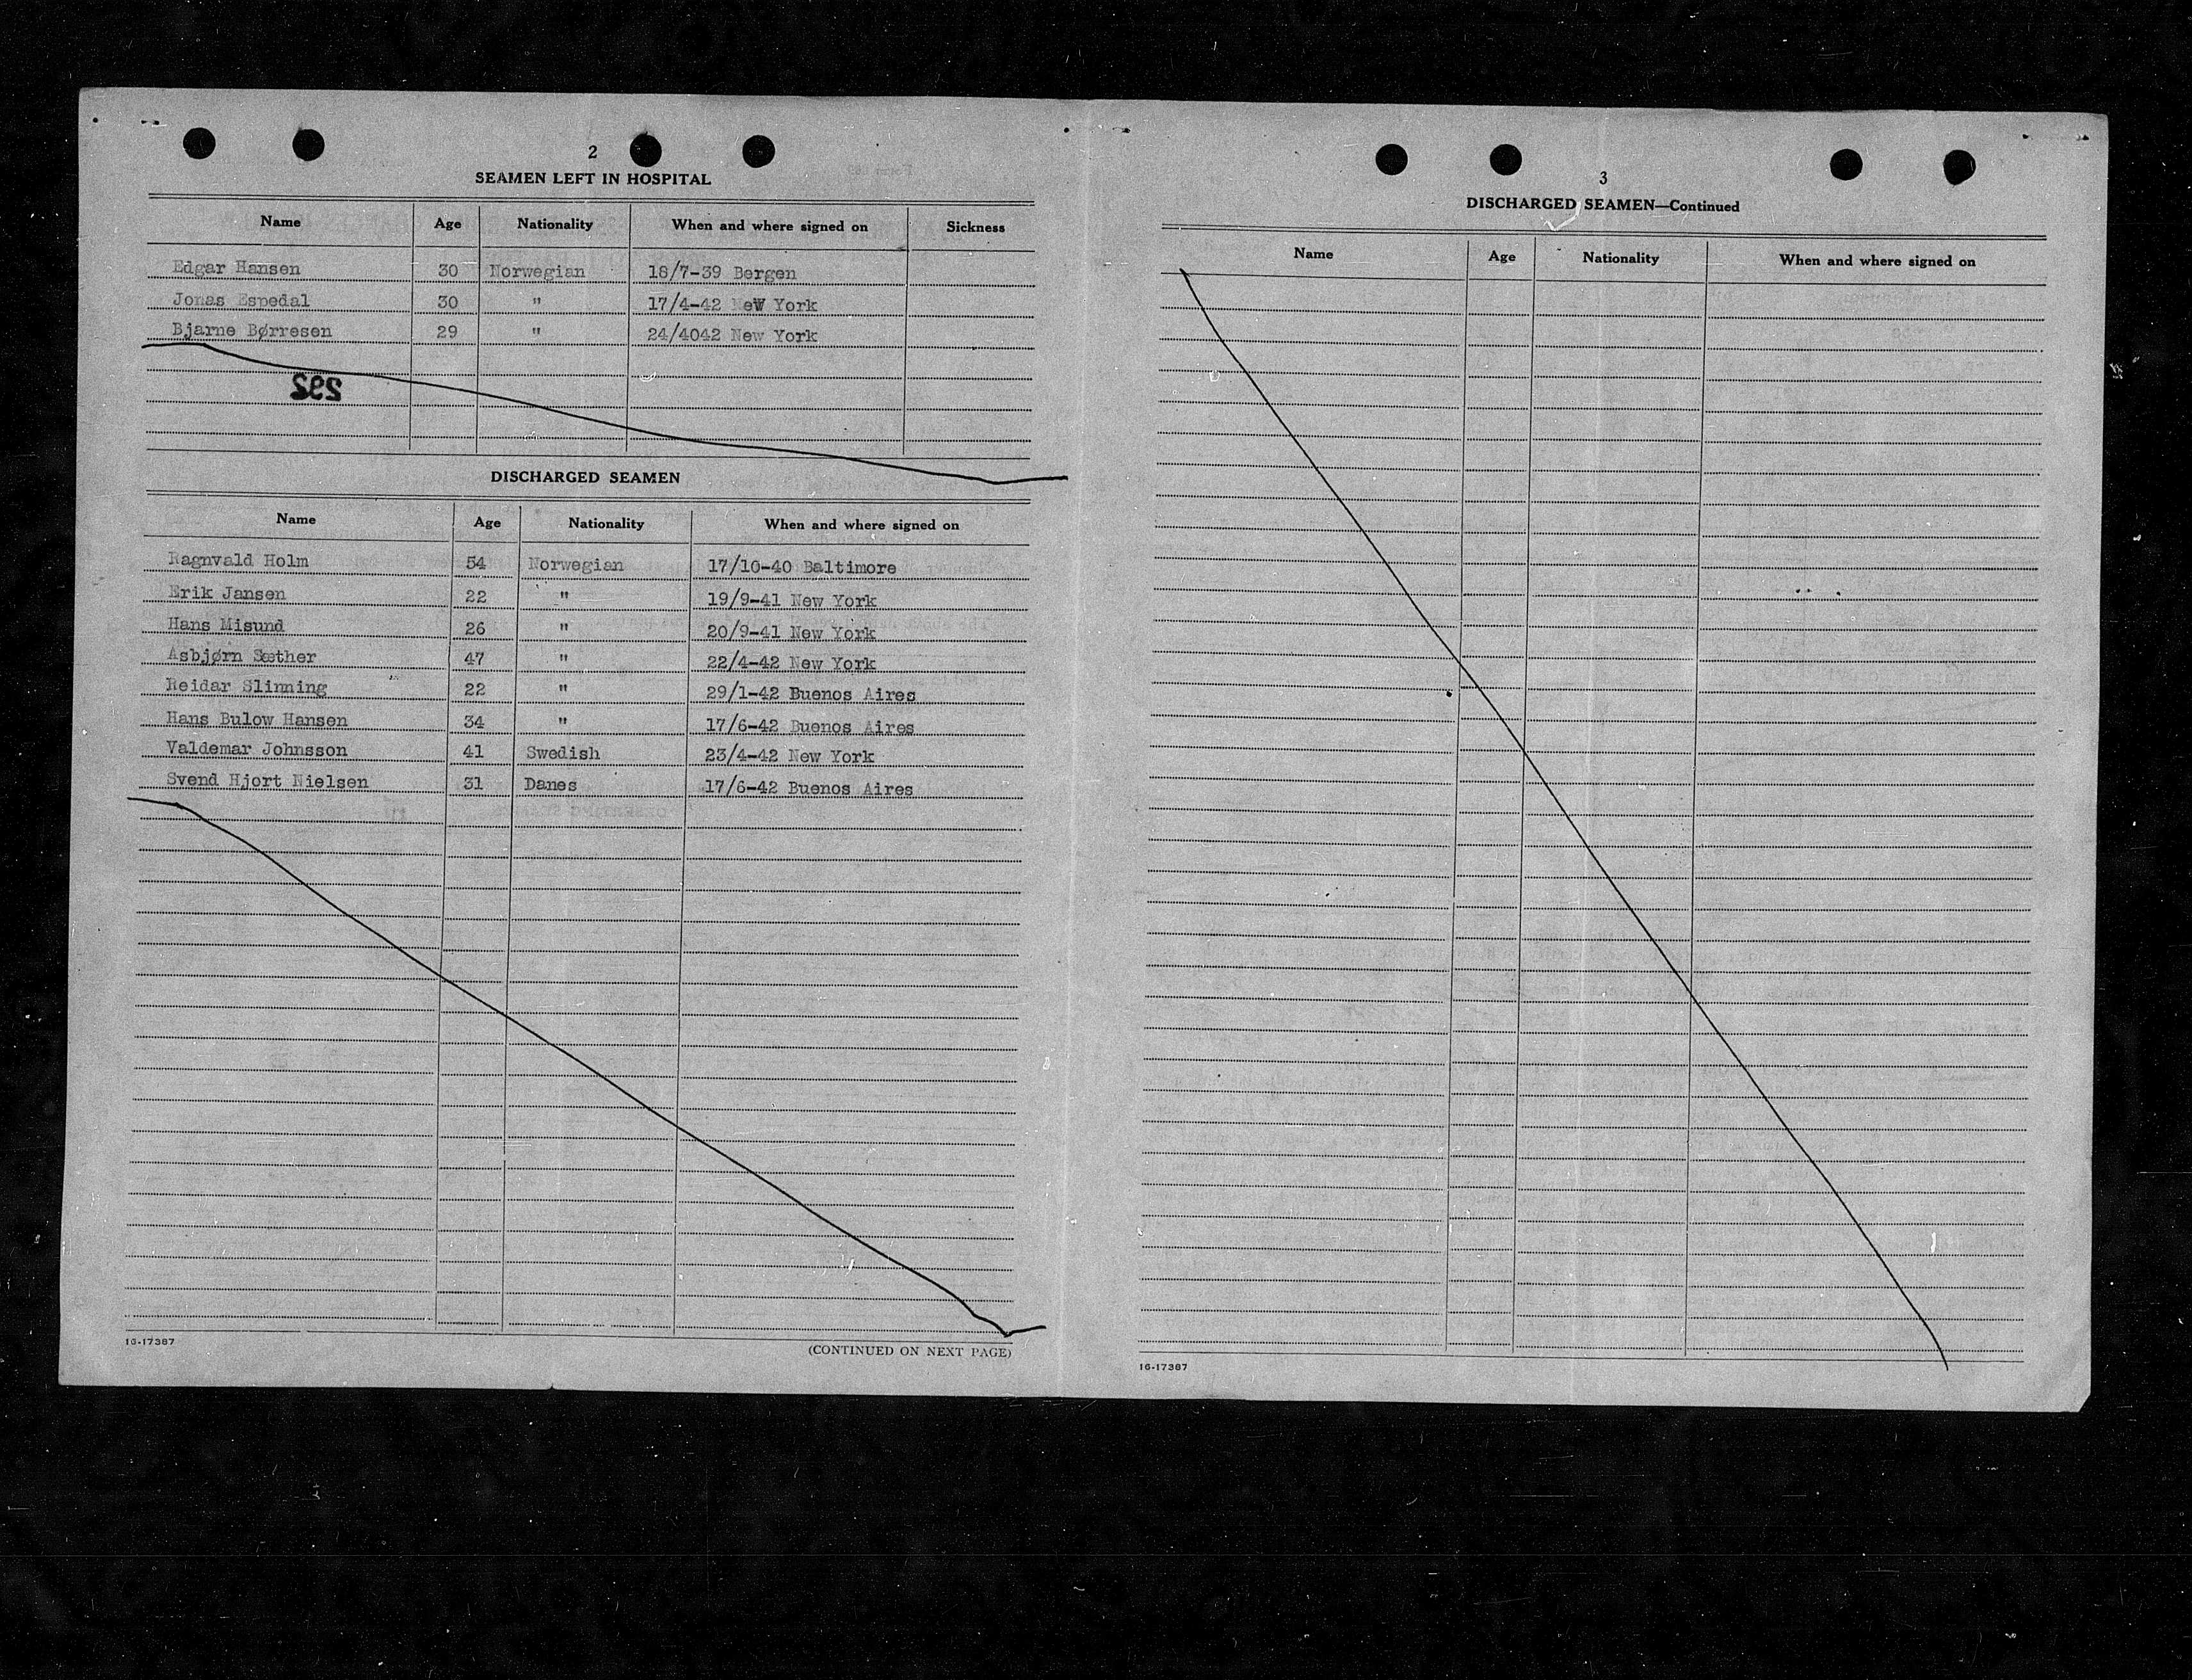 2
SEAMEN LEFT IN HOSPITAL
Name Age Nationality When and where signed on Sickness
Edgar Hansen 30 Norwegian 18/7-39 Bergen
Jonas Espedal 30 " 17/4-42 New York
Bjarne Børresen 29 " 24/4042 New York
DISCHARGED SEAMEN
Name Age Nationality When and where signed on
Ragnvald Holm 54 Norwegian 17/10-40 Baltimore
Erik Jansen 22 " 19/9-41 New York
Hans Misund 26 " 20/9-41 New York
Asbjørn Sæther 47 " 22/4-42 New York
Reidar Slinning 22 " 29/1-42 Buenos Aires
Hans Bulow Hansen 34 " 17/6-42 Buenos Aires
Valdemar Johnsson 41 Swedish 23/4-42 New York
Svend Hjort Nielsen 31 Danes 17/6-42 Buenos Aires
16-17387
(CONTINUED ON NEXT PAGE)
3
DISCHARGED SEAMEN—Continued
Name Age Nationality When and where signed on
16-17387